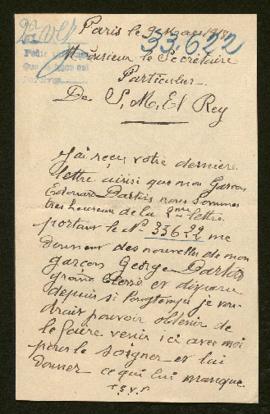 Paris le 9 Mars
33.622
Monsieur le Secrétaire
Particulier
De S. M. El Rey
J'ai reçu votre dernière
lettre ainsi que mon Garçon
Edouard nous sommes
très heureux de la 2me lettre
portant le No 33622 me
donnant des nouvelles de mon
garçon George
grand blessé et disparu
depuis si longtemps je vou-
drais pouvoir obtenir de
le faire venir ici avec moi
pour le soigner et lui
donner ce qui lui manque
T.S.V.P